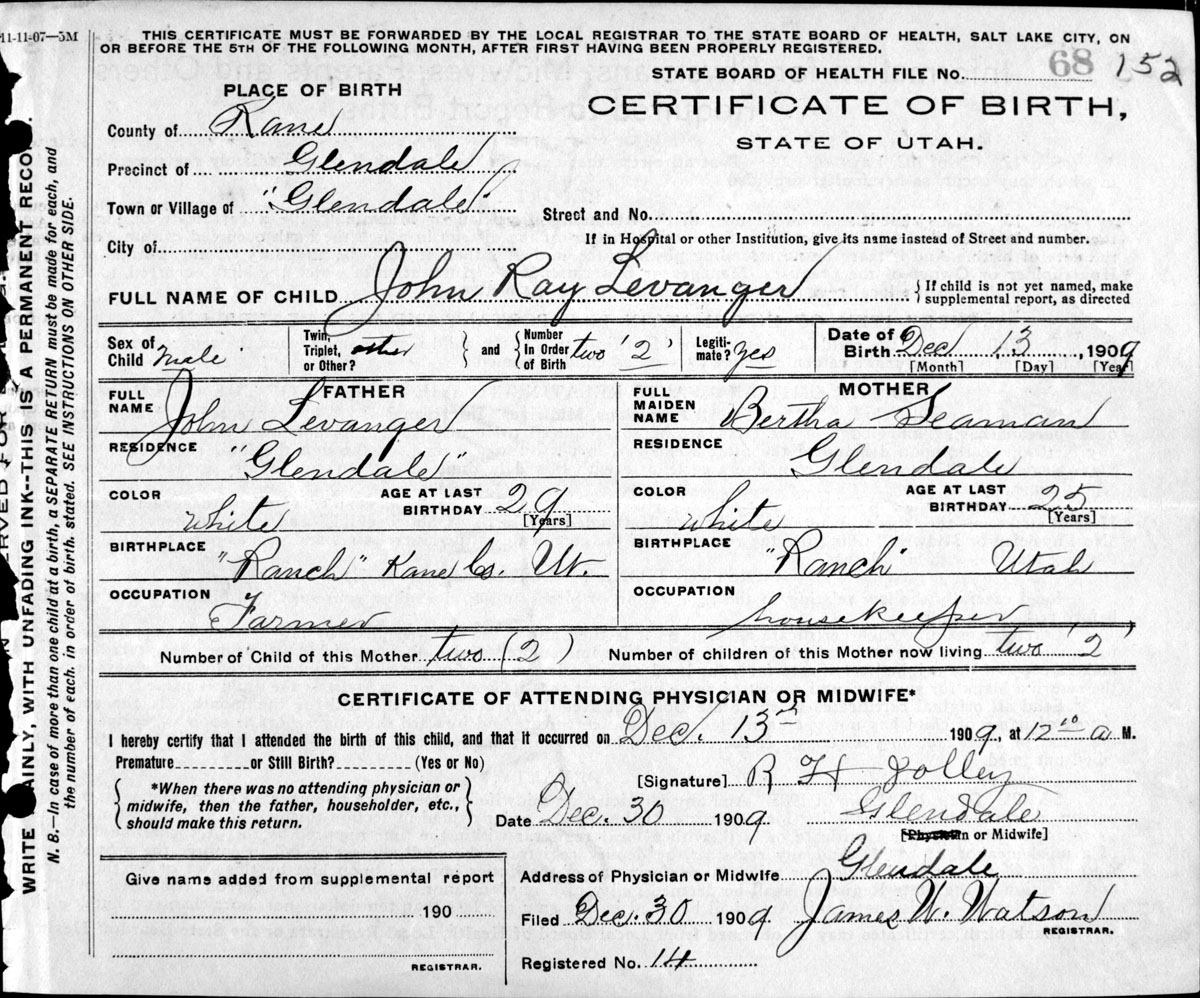 11-11-07—5M
THIS CERTIFICATE MUST BE FORWARDED BY THE LOCAL REGISTRAR TO THE STATE BOARD OF HEALTH, SALT LAKE CITY, ON
OR BEFORE THE 5TH OF THE FOLLOWING MONTH, AFTER FIRST HAVING BEEN PROPERLY REGISTERED.
STATE BOARD OF HEALTH FILE No. 68 152
PLACE OF BIRTH
CERTIFICATE OF BIRTH,
STATE OF UTAH.
County of Kane
Precinct of Glendale
Town or Village of "Glendale"
Street and No.
City of
If in Hospital or other Institution, give its name instead of Street and number.
FULL NAME OF CHILD John Ray Levanger
If child is not yet named, make
supplemental report, as directed
Sex of Child Male
Twin, Triplet, or Other? other
and Number In Order of Birth two '2'
Legiti-mate? yes
Date of Birth Dec 13, 1909
[Month] [Day] [Year]
FATHER
FULL NAME John Levanger
RESIDENCE "Glendale"
COLOR white
AGE AT LAST BIRTHDAY 29 [Years]
BIRTHPLACE "Ranch" Kane Co. Ut.
OCCUPATION Farmer
MOTHER
FULL MAIDEN NAME Bertha Seaman
RESIDENCE Glendale
COLOR white
AGE AT LAST BIRTHDAY 25 [Years]
BIRTHPLACE "Ranch" Utah
OCCUPATION housekeeper
Number of Child of this Mother two (2) Number of children of this Mother now living two '2'
CERTIFICATE OF ATTENDING PHYSICIAN OR MIDWIFE*
I hereby certify that I attended the birth of this child, and that it occurred on Dec. 13th 1909, at 12 a M.
Premature or Still Birth? (Yes or No)
[Signature] R H Jolley
*When there was no attending physician or
midwife, then the father, householder, etc.,
should make this return.
Date Dec. 30 1909 Glendale
[Physician or Midwife]
Give name added from supplemental report
190
REGISTRAR.
Address of Physician or Midwife Glendale
Filed Dec. 30 1909 James W. Watson
REGISTRAR.
Registered No. 14
WRITE PLAINLY, WITH UNFADING INK--THIS IS A PERMANENT RECORD.
N. B.—In case of more than one child at a birth, a SEPARATE RETURN must be made for each, and
the number of each, in order of birth, stated. SEE INSTRUCTIONS ON OTHER SIDE.